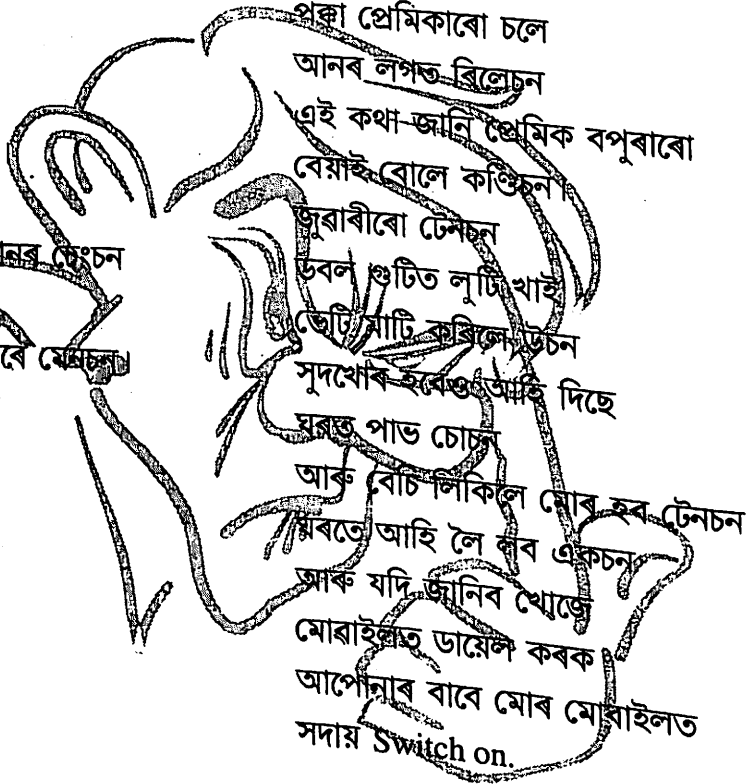 পক্কা প্ৰেমিকাৰো চলে
আনৰ লগত ৰিলেচন
এই কথা জানি প্ৰেমিক বপুৰাৰো
বেয়াই বোলে কণ্ডিচন।
জুৱাৰীৰো টেনচন
ডবল গুটিত লুটি খাই
ভেটি মাটি কৰিলে উচন
সুদখোৰ হবেও আহি দিছে
ঘৰত পাভ চোচন
আৰু বেচি লিকিলে মোৰ হব টেনচন
ঘৰতে আহি লৈ লব একচন
আৰু যদি জানিব খোজে
মোৱাইলত ডায়েল কৰক।
আপোনাৰ বাবে মোৰ মোবাইলত
সদায় Switch on.
নৰ চেংচন
ৰে মেনচন।